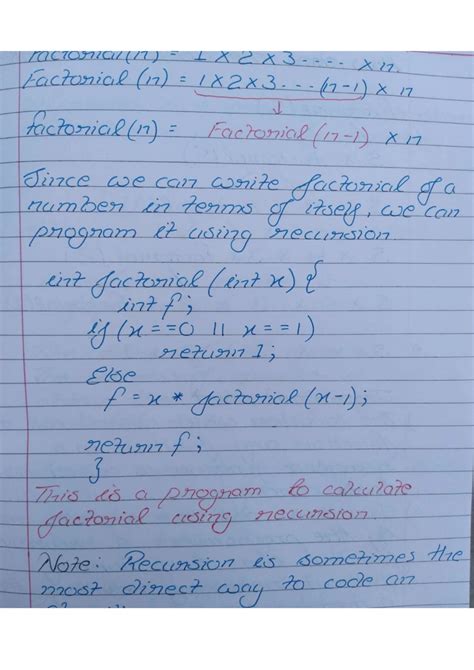 Factorial(n) = 1 x 2 x 3 .... x n.
Factorial (n) = 1 x 2 x 3 ... (n-1) x n
factorial (n) = Factorial (n-1) x n
Since we can write factorial of a
number in terms of itself, we can
program it using recursion.
int factorial (int x) {
int f ;
if (x == 0 || x == 1)
return 1;
Else
f = x * factorial (x-1);
return f ;
}
This is a program to calculate
factorial using recursion.
Note: Recursion is sometimes the
most direct way to code an